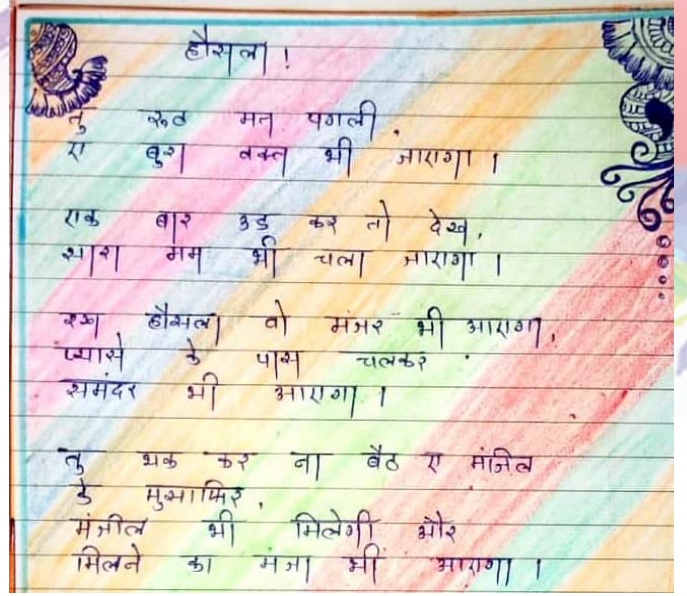 हौसला !
तु रूठ मत पगली,
ए बुरा वक्त भी जाएगा ।
एक बार उड कर तो देख,
सारा गम भी चला जाएगा ।
रख हौसला वो मंजर भी आएगा,
प्यासे के पास चलकर
समंदर भी आएगा ।
तु थक कर ना बैठ ए मंजिल
के मुसाफिर,
मंजील भी मिलेगी और
मिलने का मजा भी आएगा ।